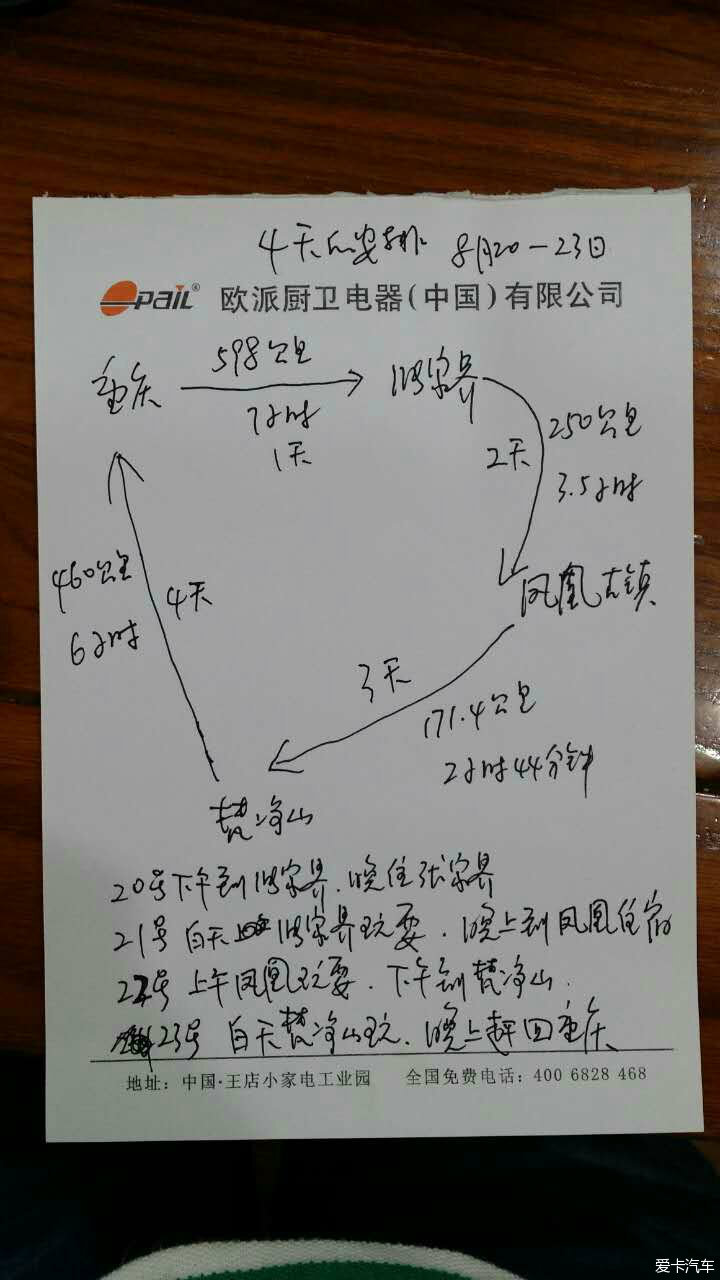 4天的安排 8月20-23日
OPAIL® 欧派厨卫电器(中国)有限公司
重庆 598公里 张家界
7小时
1天
2天 250公里
3.5小时
凤凰古镇
460公里 4天
6小时
3天
171.4公里
2小时44分钟
梵净山
20号下午到张家界.晚住张家界
21号 白天张家界玩耍.晚上到凤凰住宿
22号 上午凤凰玩耍.下午到梵净山.
23号 白天梵净山玩.晚上赶回重庆
地址：中国·王店小家电工业园 全国免费电话：400 6828 468
爱卡汽车